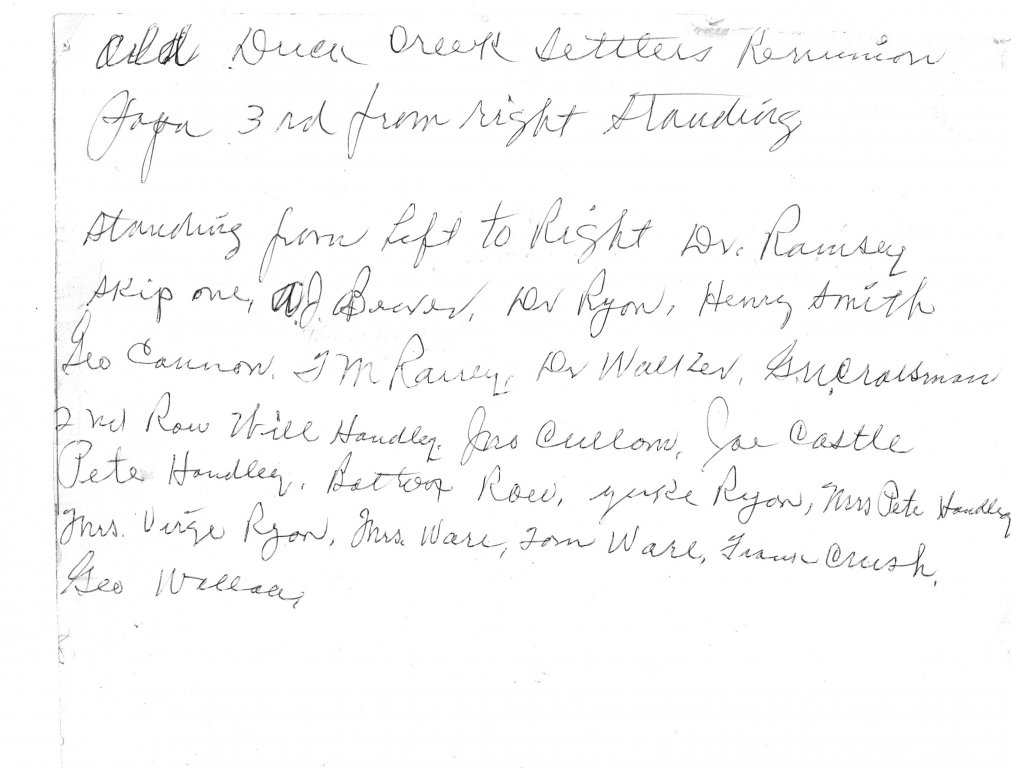 Old Duck Creek Settlers Reunion
Papa 3rd from right Standing
Standing from Left to Right Dr. Ramsey
skip one, A.J. Beaver, Dr Ryon, Henry Smith
Geo Cannon. T M Rainey, Dr Walker, G.W. Crossman
2nd Row Will Handley. Jno Cullom, Joe Castle
Pete Handley. Bottom Row, Ryon, Mrs Pete Handley
Mrs. Virge Ryon, Mrs. Ware, Tom Ware, Frank Crush.
Geo Wallace,